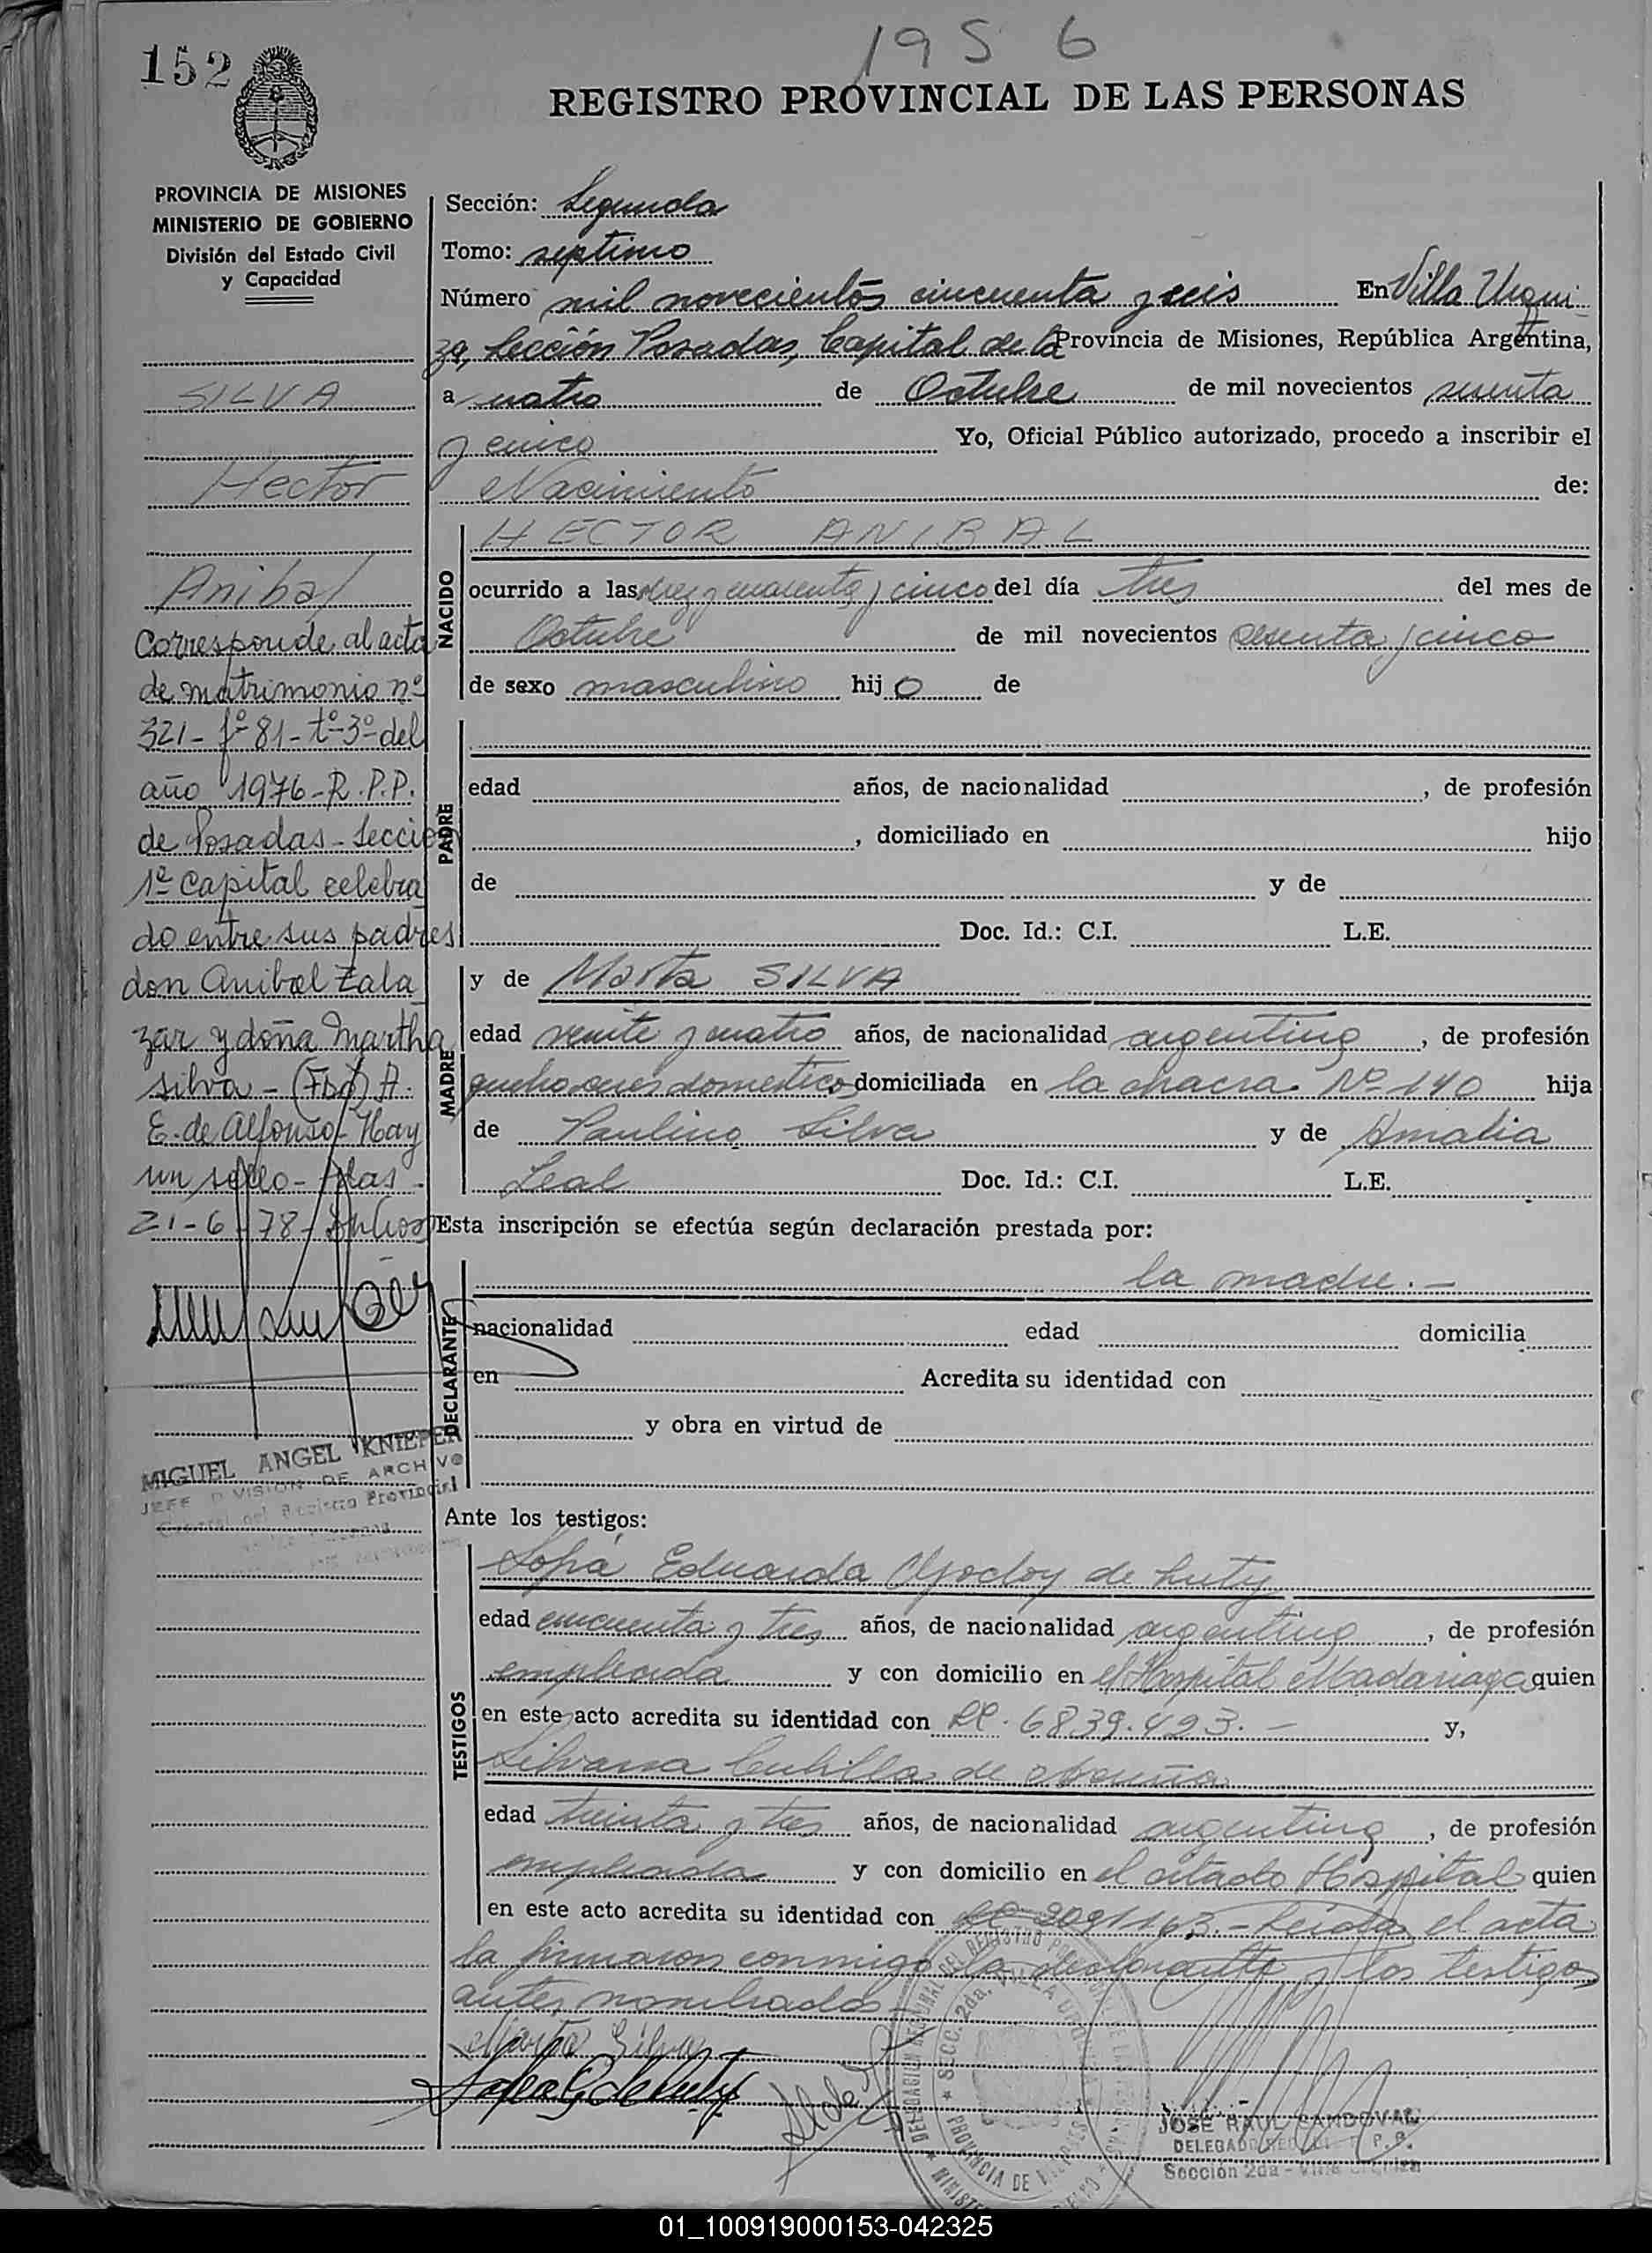 1956
152
REGISTRO PROVINCIAL DE LAS PERSONAS
PROVINCIA DE MISIONES
MINISTERIO DE GOBIERNO
División del Estado Civil
y Capacidad
SILVA
Hector
Anibal
Corresponde al acta
de matrimonio nº
321 - fº 81 - tº 3º del
año 1976 - R.P.P.
de Posadas - Secció
1º Capital celebra
do entre sus padres
don Anibal Zala
zar y doña Martha
Silva - (Fdo) A.
E. de Alfonso - Hay
un sello - Pdas -
21-6-78
MIGUEL ANGEL KNIEPER
JEFE DIVISION DE ARCHIVO
Sección: Segunda
Tomo: septimo
Número mil novecientos cincuenta y seis En Villa Urqui
za, Sección Posadas, Capital de la Provincia de Misiones, República Argentina,
a cuatro de Octubre de mil novecientos sesenta
y cinco Yo, Oficial Público autorizado, procedo a inscribir el
Nacimiento de:
NACIDO
HECTOR ANIBAL
ocurrido a las diez y cuarenta y cinco del día tres del mes de
Octubre de mil novecientos sesenta y cinco
de sexo masculino hijo de
PADRE
edad años, de nacionalidad , de profesión
, domiciliado en hijo
de y de
Doc. Id.: C.I. L.E.
MADRE
y de Marta SILVA
edad veinte y cuatro años, de nacionalidad argentina, de profesión
quehaceres domesticos domiciliada en la chacra Nº 140 hija
de Paulino Silva y de Amalia
Leal Doc. Id.: C.I. L.E.
Esta inscripción se efectúa según declaración prestada por:
DECLARANTE
la madre.-
nacionalidad edad domicilia
en Acredita su identidad con
y obra en virtud de
Ante los testigos:
TESTIGOS
Sofia Eduarda Godoy de Luty
edad cincuenta y tres años, de nacionalidad argentina, de profesión
empleada y con domicilio en el Hospital Madariaga quien
en este acto acredita su identidad con LC. 6839.423.- y,
Silvana Cubilla de Acuña
edad treinta y tres años, de nacionalidad argentina, de profesión
empleada y con domicilio en el citado Hospital quien
en este acto acredita su identidad con LC 2091163.- Leida el acta
la firmaron conmigo la declarante y los testigos
antes nombrados
Marta Silva
JOSE RAUL SANDOVAL
Sección 2da - Villa Urquiza
01_100919000153-042325